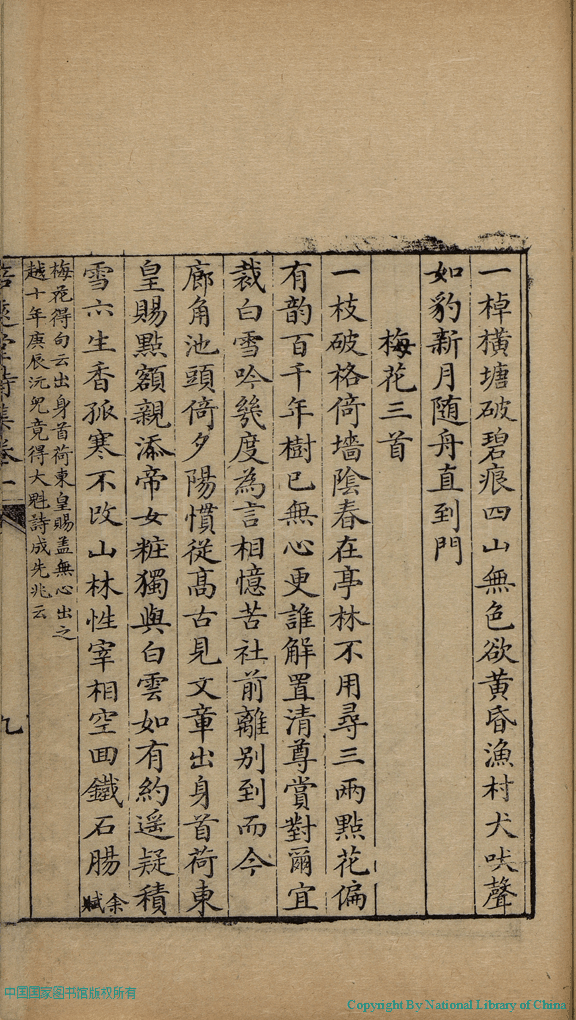 一棹橫塘破碧痕四山無色欲黄昏漁村犬吠聲
如豹新月随舟直到門
梅花三首
一枝破格倚墻陰春在亭林不用尋三兩點花偏
有韵百千年樹已無心更誰解置清尊賞對爾宜
裁白雪吟幾度為言相憶苦社前離别到而今
廊角池頭倚夕陽慣從髙古見文章出身首荷東
皇賜點額親添帝女粧獨與白雲如有約遥疑積
雪六生香孤寒不改山林性宰相空回鐵石腸余賦
梅花得句云出身首荷東皇賜盖無心出之
越十年庚辰沅兒竟得大魁詩成先兆云
詩集卷一
九
中国国家图书馆版权所有
Copyright By National Library of China